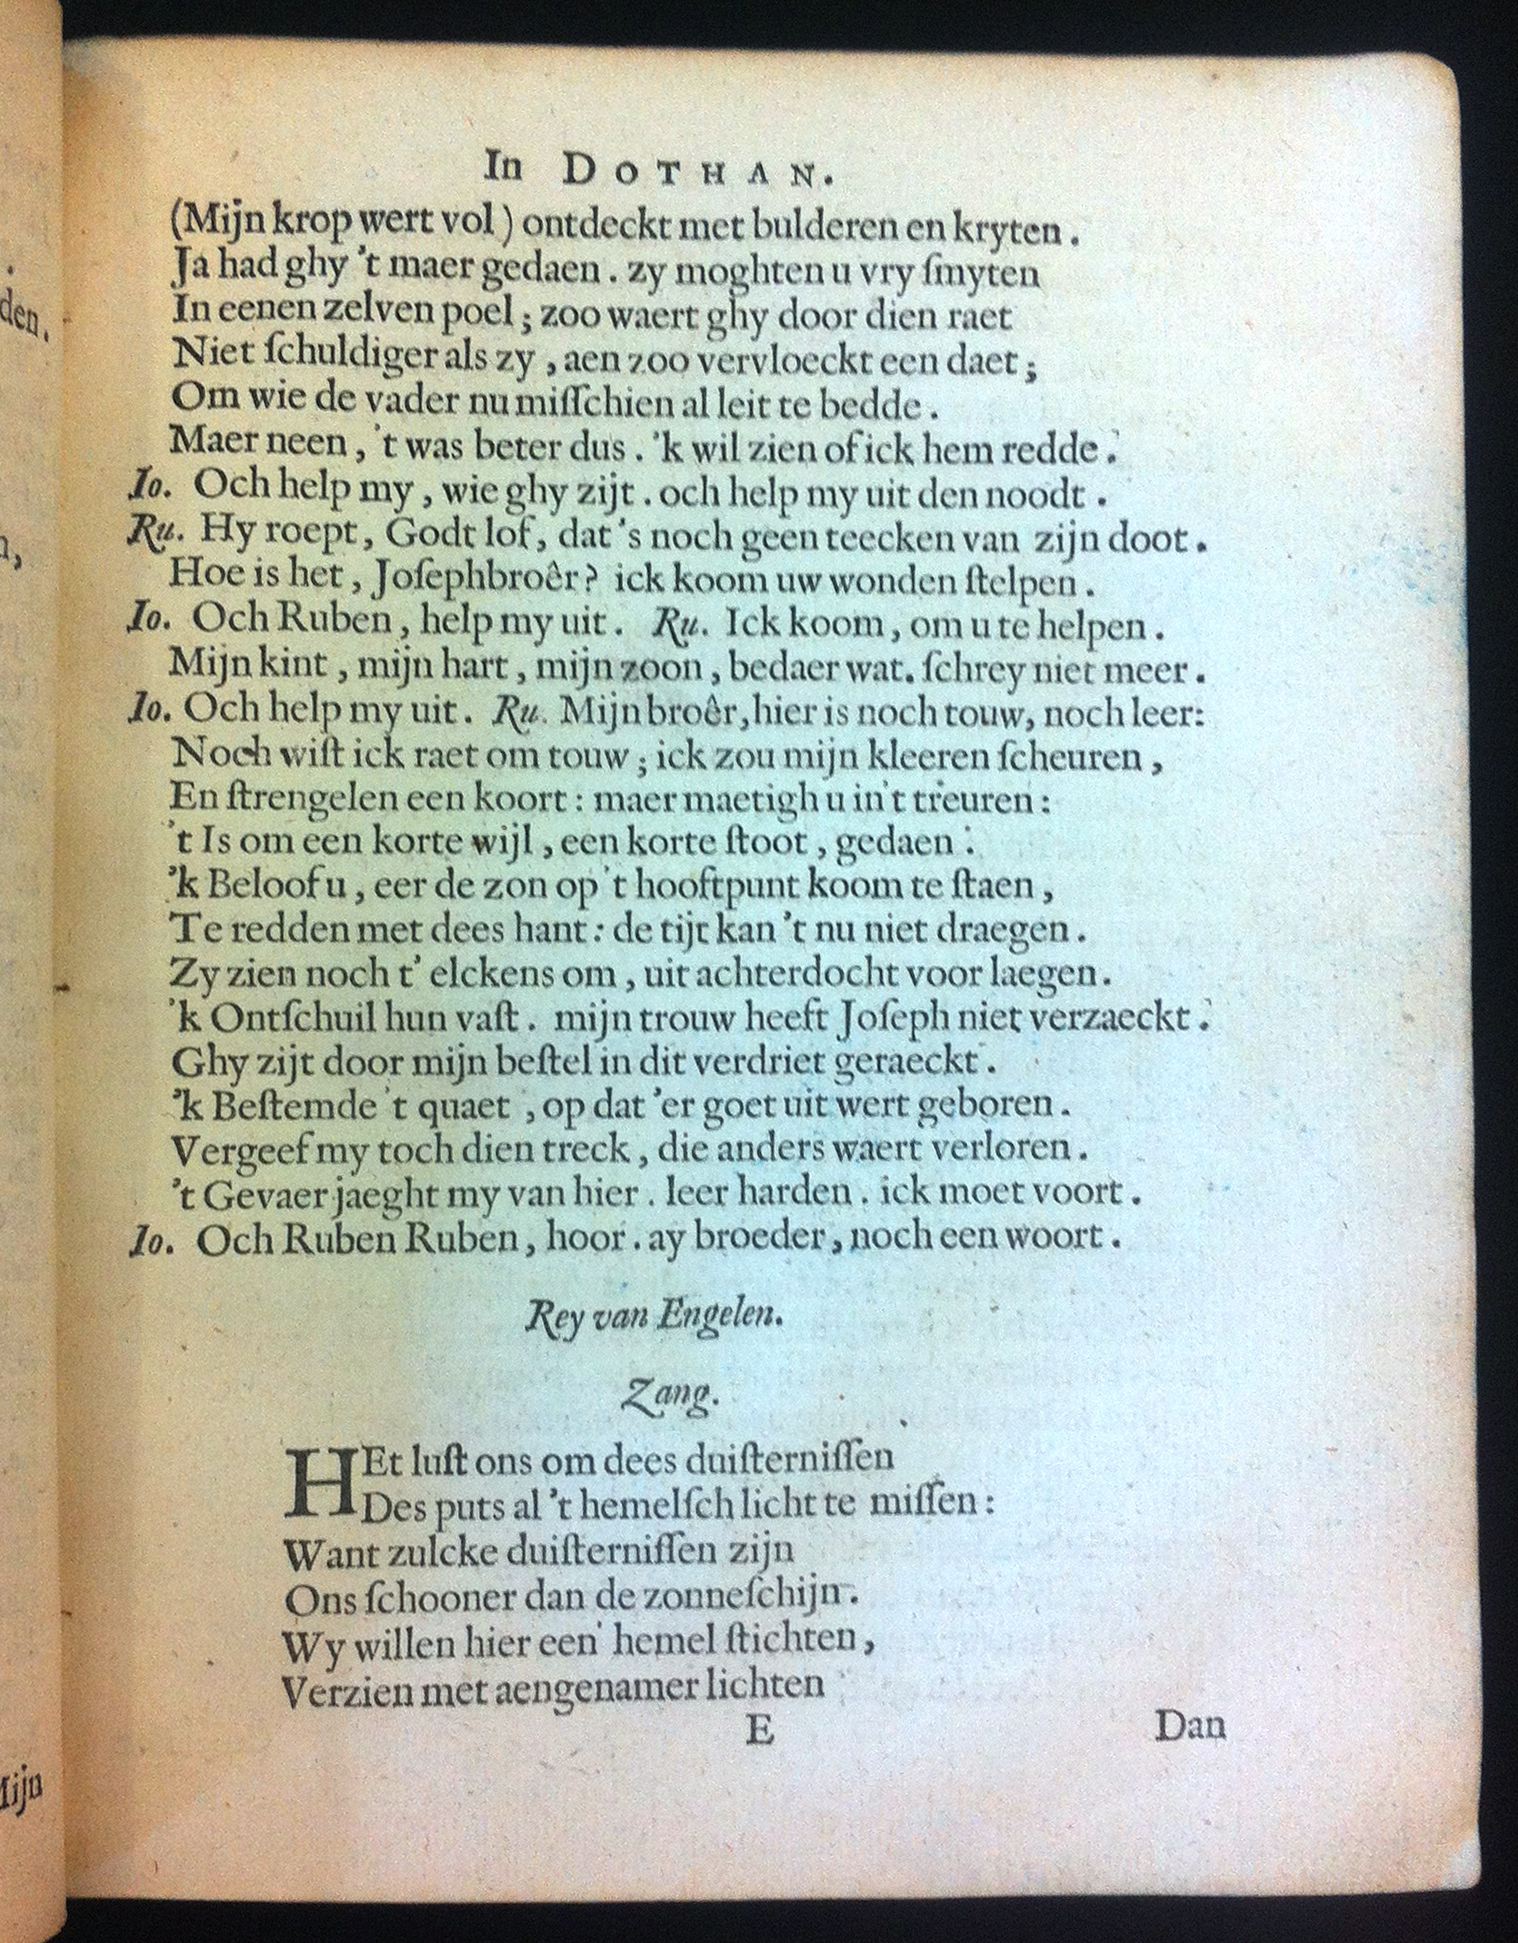 In DOTHAN.
(Mijn krop wert vol) ontdeckt met bulderen en kryten.
Ja had ghy 't maer gedaen. zy moghten u vry ſmyten
In eenen zelven poel; zoo waert ghy door dien raet
Niet ſchuldiger als zy, aen zoo vervloeckt een daet;
Om wie de vader nu miſſchien al leit te bedde.
Maer neen, 't was beter dus. 'k wil zien of ick hem redde.
Io. Och help my, wie ghy zijt. och help my uit den noodt.
Ru. Hy roept, Godt lof, dat 's noch geen teecken van zijn doot.
Hoe is het, Joſephbroêr? ick koom uw wonden ſtelpen.
Io. Och Ruben, help my uit. Ru. Ick koom, om u te helpen.
Mijn kint, mijn hart, mijn zoon, bedaer wat. ſchrey niet meer.
Io. Och help my uit. Ru. Mijn broêr, hier is noch touw, noch leer:
Noch wiſt ick raet om touw; ick zou mijn kleeren ſcheuren,
En ſtrengelen een koort: maer maetigh u in 't treuren:
't Is om een korte wijl, een korte ſtoot, gedaen.
'k Beloof u, eer de zon op 't hooftpunt koom te ſtaen,
Te redden met dees hant: de tijt kan 't nu niet draegen.
Zy zien noch t' elckens om, uit achterdocht voor laegen.
'k Ontſchuil hun vaſt. mijn trouw heeft Joſeph niet verzaeckt.
Ghy zijt door mijn beſtel in dit verdriet geraeckt.
'k Beſtemde 't quaet, op dat 'er goet uit wert geboren.
Vergeef my toch dien treck, die anders waert verloren.
't Gevaer jaeght my van hier. leer harden. ick moet voort.
Io. Och Ruben Ruben, hoor. ay broeder, noch een woort.
Rey van Engelen.
Zang.
HEt luſt ons om dees duiſterniſſen
Des puts al 't hemelſch licht te miſſen:
Want zulcke duiſterniſſen zijn
Ons ſchooner dan de zonneſchijn.
Wy willen hier een' hemel ſtichten,
Verzien met aengenamer lichten
E Dan
den.
Mijn